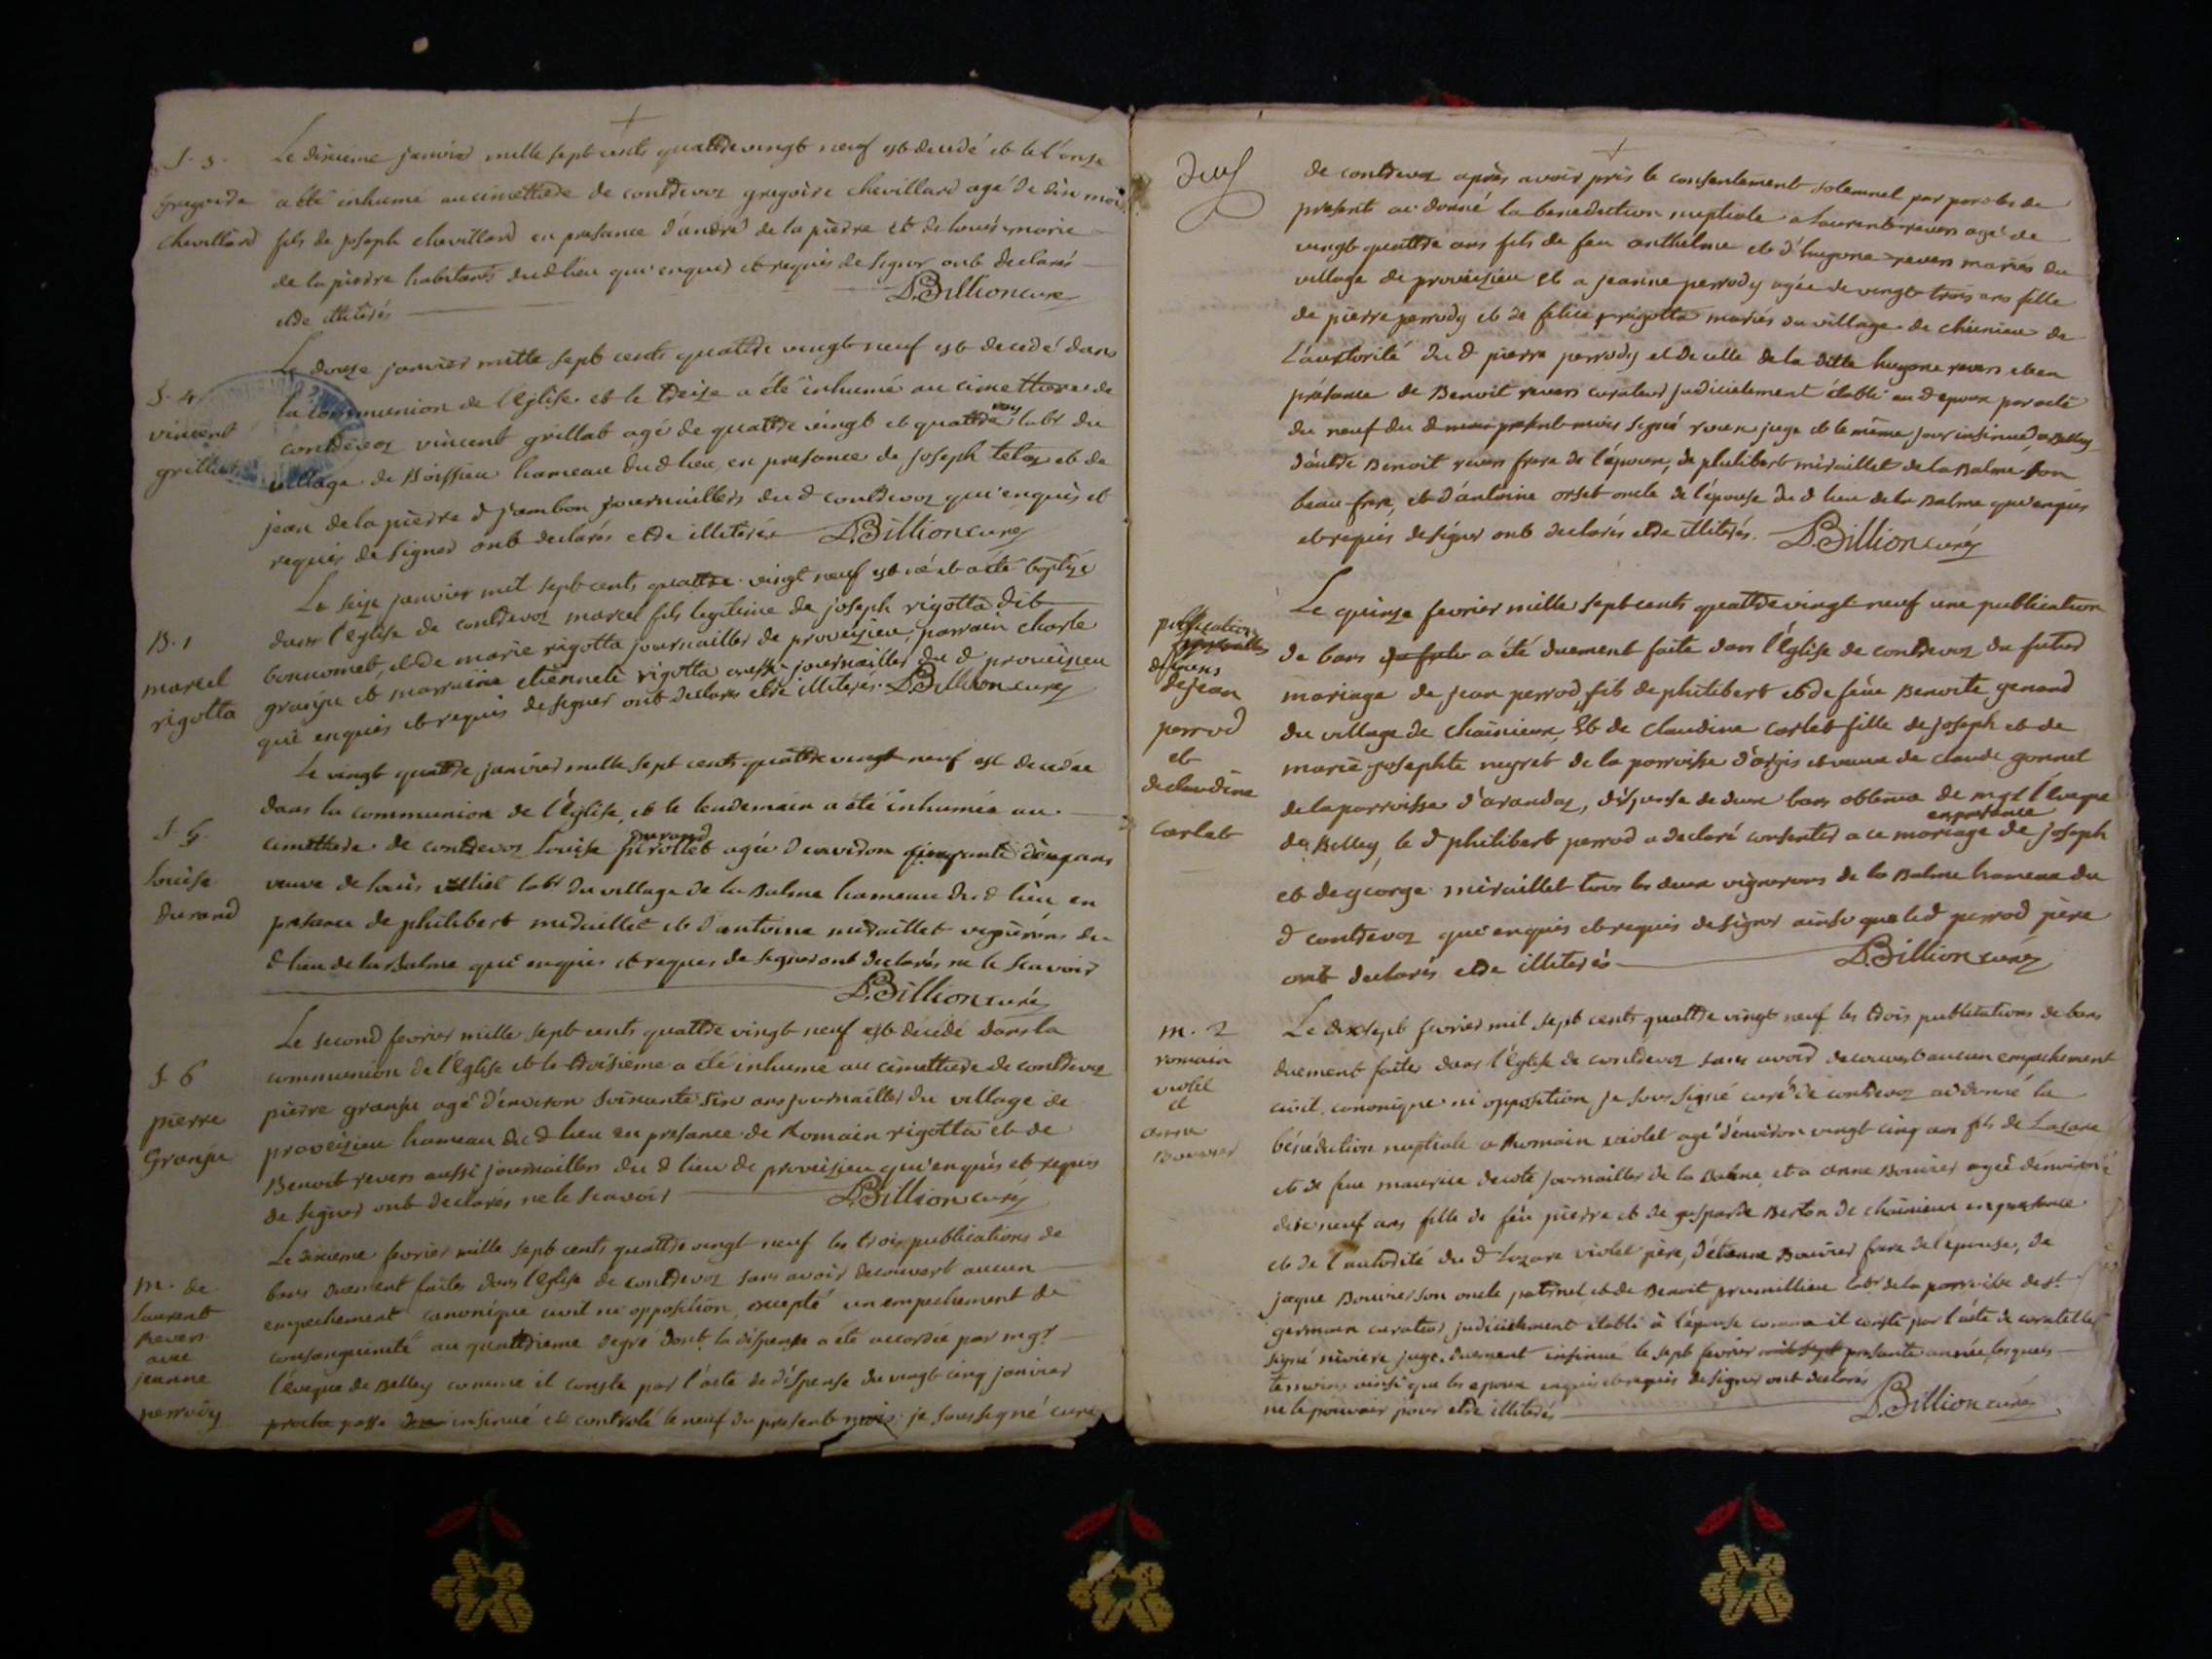 S. 3. Le dixième janvier mille sept cents quattre vingt neuf est decedé et le l'onze
gregoire a été inhumé au cimettiere de contrevoz gregoire chevillard agé de dix mois
chevillard fils de joseph chevillard en presance d'andré de la pierre et de louis marie
de la pierre habitants dud lieu qui enquis et requis de signer ont declarés
etre illiterés D. Billion curé
Le douze janvier mille sept cents quattre vingt neuf est decedé dans
S. 4 la communion de l'Eglise et le treize a été inhumé au cimettiere de
vincent contrevoz vincent grillat agé de quattre vingt et quattre ans labr du
grillat village de Boissieu hameau dud lieu, en presance de joseph telaz et de
jean de la pierre d jambon journailliers du d contrevoz qui enquis et
requis de signer ont declarés etre illiterés D. Billion curé
Le seize janvier mil sept cents quattre vingt neuf est né et a été baptizé
B. 1 dans l'eglise de contrevoz marcel fils legitime de joseph rigotta dit
marcel bonnomet, et de marie rigotta journaillier de proveizieu, parrain charle
rigotta granju et marraine etiennete rigotta aussi journaillier du d proveizieu
qui enquis et requis de signer ont declarés etre illiterés D. Billion curé
Le vingt quattre janvier mille sept cents quattre vingt neuf est decedée
dans la communion de l'Eglise, et le lendemain a été inhumée au
S. 5. cimettiere de contrevoz Louise durand agée d'environ cinq ans
Louise veuve de louis labr du village de la Balme hameau du d lieu en
durand presance de philibert miraillet et d'antoine miraillet vignerons du
d lieu de la Balme qui enquis et requis de signer ont declarés ne le scavoir
D. Billion curé
Le second fevrier mille sept cents quattre vingt neuf est decedé dans la
S 6 communion de l'Eglise et le troisième a été inhumé au cimettiere de contrevoz
pierre pierre granju agé d'environ soixante six ans journaillier du village de
Granju proveizieu hameau du d lieu en presance de Romain rigotta et de
Benoit revers aussi journailliers du d lieu de proveizieu qui enquis et requis
de signer ont declarés ne le scavoir D. Billion curé
Le dixième fevrier mille sept cents quattre vingt neuf les trois publications de
m. de bans duement faites dans l'Eglise de contrevoz sans avoir decouvert aucun
laurent empechement canonique civil ni opposition, excepté un empechement de
Revers consanguinité au quattrieme degré dont la dispense a été accordée par mgr
avec l'éveque de Belley comme il conste par l'acte de dispense du vingt cinq janvier
jeanne
perrody proche passé insinué et controlé le neuf du present mois je soussigné curé
de contrevoz après avoir pris le consentement solemnel par paroles de
presents ai donné la benediction nuptiale a laurent revers agé de
vingt quattre ans fils de feu anthelme et d'hugone revers mariés du
village de proveizieu et a jeanne perrody agée de vingt trois ans fille
de pierre perrody et de felice rigotta mariés du village de chénieu de
L'authorité du d pierre perrody et de celle de la ditte hugone revers et en
présance de Benoit revers curateur judicielement établi au d epoux par acte
du neuf du d mois present mois signé juge et le même jour insinué a Belley
d'autre Benoit revers frere de l'époux, de philibert miraillet de la Balme son
beau-frere, et d'antoine orset oncle de l'épouse du d lieu de la Balme qui enquis
et requis de signer ont declarés etre illiterés. D. Billion curé
Le quinze fevrier mille sept cents quattre vingt neuf une publication
publication de bans a été duement faite dans l'Eglise de contrevoz du futur
de bans
de jean mariage de jean perrod fils de philibert et de feüe Benoite genand
perrod du village de chainieux, Et de claudine carlet fille de joseph et de
et marie josephte negret de la parroisse d'argis et veuve de claude gonnet
de claudine de la parroisse d'arandaz, dispense de deux bans obtenue de mgr l'Eveque
carlet de Belley, le d philibert perrod a declaré consentir a ce mariage en presence de joseph
et de george miraillet tous les deux vignerons de la Balme hameau du
d contrevoz qui enquis et requis de signer ainsi que le d perrod père
ont declarés etre illiterés D. Billion curé
m. 2 Le dix sept fevrier mil sept cents quattre vingt neuf les trois publications de bans
romain duement faites dans l'Eglise de contrevoz sans avoir decouvert aucun empechement
violet civil, canonique ni opposition je soussigné curé de contrevoz ai donné la
et
anne bénédiction nuptiale a Romain violet agé d'environ vingt cinq ans fils de Lazare
Bouvier et de feue maurice decote journaillier de la Balme, et a anne Bouvier agée d'environ
dix neuf ans fille de feu pierre et de gasparde Berton de chainieux en presance
et de l'autorité du d Lazare violet père, d'étienne Bouvier frere de l'epouse, de
jaque Bouvier son oncle paternel et de Benoit prumillieu labr de la parroisse de st
germain curateur judicielement établi à l'épouse comme il conste par l'acte de curatelle
signé niviere juge, duement insinué le sept fevrier presente année, lesquels
temoins ainsi que les epoux enquis et requis de signer ont declarés
ne le pouvoir pour etre illiterés D. Billion curé